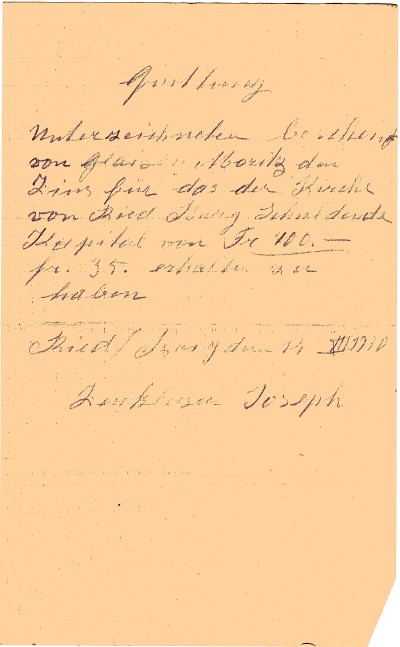 Quittung
Unterzeichneter bescheint
von Glaisen Moritz den
Zins für das der Kirche
von Ried Brig Schuldende
Kapital von Fr 700.—
fr. 35. erhalten zu
haben
Ried/Brig den 14 XII 1930
Zenklusen Joseph